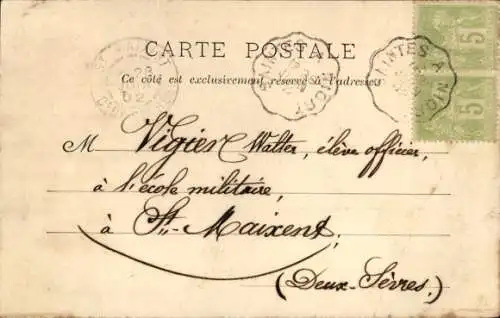 CARTE POSTALE
Ce côté est exclusivement réservé à l'adresse
SAINTES A NIORT
SAINTES A NIORT
02
5
5
M Vigier Walter, élève officier,
à l'école militaire,
à St.-Maixent,
(Deux-Sèvres.)